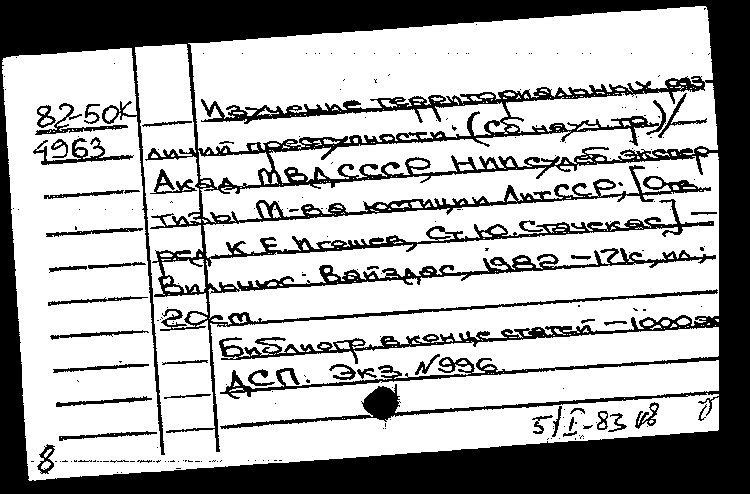 82-50К
4963
Изучение территориальных раз-
личий преступности: (Сб науч. тр.)/
Акад. МВД СССР, НИИ судеб. экспер-
тизы М-ва юстиции ЛитССР; [Отв.
ред. К.Е. Игошев, Ст.Ю. Стачекас] —
Вильнюс: Вайздас, 1982 — 171с., ил.;
20см.
Библиогр. в конце статей — 1000 эк
ДСП. Экз. №996.
5/I-83
8